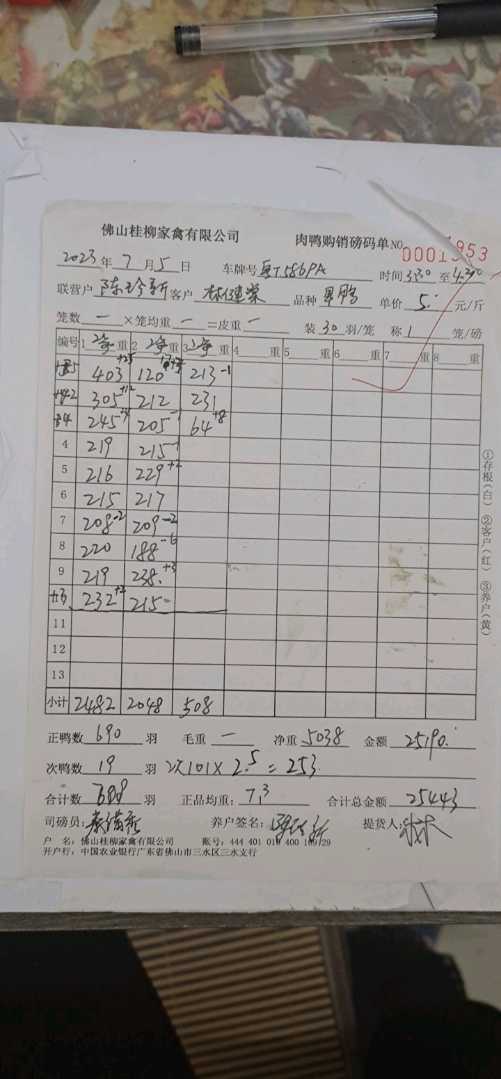 佛山桂柳家禽有限公司 肉鸭购销磅码单 NO 0001953
2023年7月5日 车牌号 时间 3:30 至 4:30
联营户 客户 品种 单价 5. 元/斤
笼数 一 ×笼均重 一 =皮重 一 装 30 羽/笼 称 1 笼/磅
编号 1 净重 2 净重 3 净重 4 重 5 重 6 重 7 重 8 重
403 120 213-1
305+12 212 231
245 205 64+8
4 219 215
5 216 229
6 215 217
7 208-2 209-2
8 220 188-6
9 219 238.+3
232 215
11
12
13
小计 2482 2048 508
正鸭数 690 羽 毛重 一 净重 5038 金额 25190.
次鸭数 19 羽 次101×2.5=253
合计数 羽 正品均重: 7.3 合计总金额 25443
司磅员: 养户签名: 提货人:
户 名: 佛山桂柳家禽有限公司 账号: 444 401 010 400 10
开户行: 中国农业银行广东省佛山市三水区三水支行
①存根(白) ②客户(红) ③养户(黄)